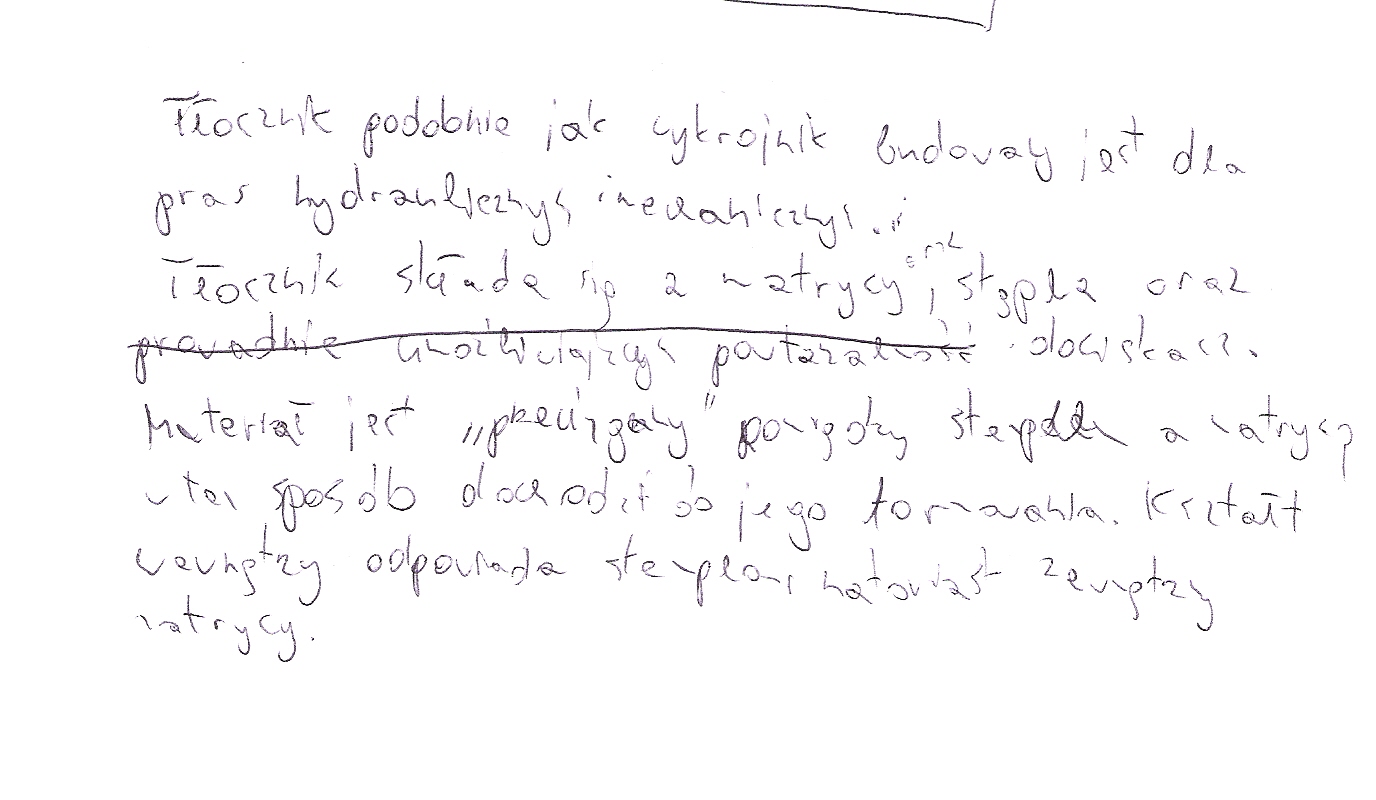 Tłocznik podobnie jak wykrojnik budowany jest dla
pras hydraulicznych i mechanicznych.
Tłocznik składa się z matrycy, stępla oraz
prowadnic umożliwiających powtarzalność dociskacz.
Materiał jest „przeciągany" pomiędzy stemplem a matrycą
w ten sposób dochodzi do jego formowania. Kształt
wewnętrzny odpowiada stemplowi natomiast zewnętrzny
matrycy.